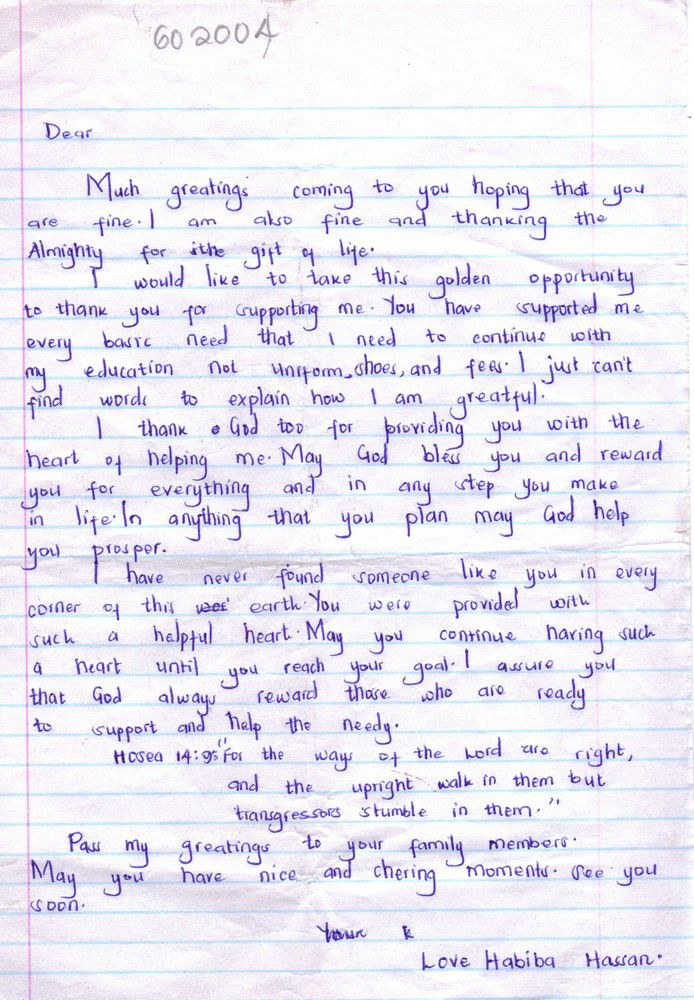 602004
Dear
Much greatings coming to you hoping that you
are fine. I am also fine and thanking the
Almighty for the gift of life.
I would like to take this golden opportunity
to thank you for supporting me. You have supported me
every basic need that I need to continue with
my education not uniform, shoes, and fees. I just can't
find words to explain how I am greatful.
I thank God too for providing you with the
heart of helping me. May God bless you and reward
you for everything and in any step you make
in life. In anything that you plan may God help
you prosper.
I have never found someone like you in every
corner of this earth. You were provided with
such a helpful heart. May you continue having such
a heart until you reach your goal. I assure you
that God always reward those who are ready
to support and help the needy.
Hosea 14:9 "For the ways of the Lord are right,
and the upright walk in them but
transgressors stumble in them."
Pass my greatings to your family members.
May you have nice and chering moments. See you
soon.
Love Habiba Hassan.